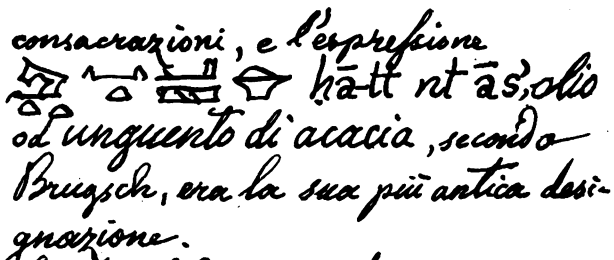 consacrazioni, e l'espressione
ḥā-tt nt āś, olio
od unguento di acacia, secondo
Brugsch, era la sua più antica desi-
gnazione.